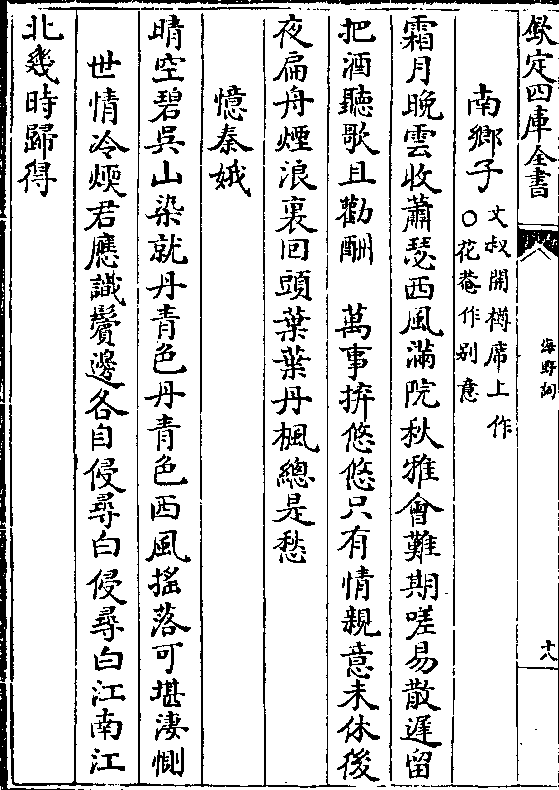 欽定四庫全書
海野詞
十八
南鄉子
文叔開樽席上作
○花菴作别意
霜月晚雲收蕭瑟西風滿院秋雅會難期嗟易散遲留
把酒聽歌且勸酬　萬事拚悠悠只有情親意未休後
夜扁舟煙浪裏回頭葉葉丹楓總是愁
憶秦娥
晴空碧吳山染就丹青色丹青色西風搖落可堪淒惻
世情冷煗君應識鬢邊各自侵尋白侵尋白江南江
北幾時歸得